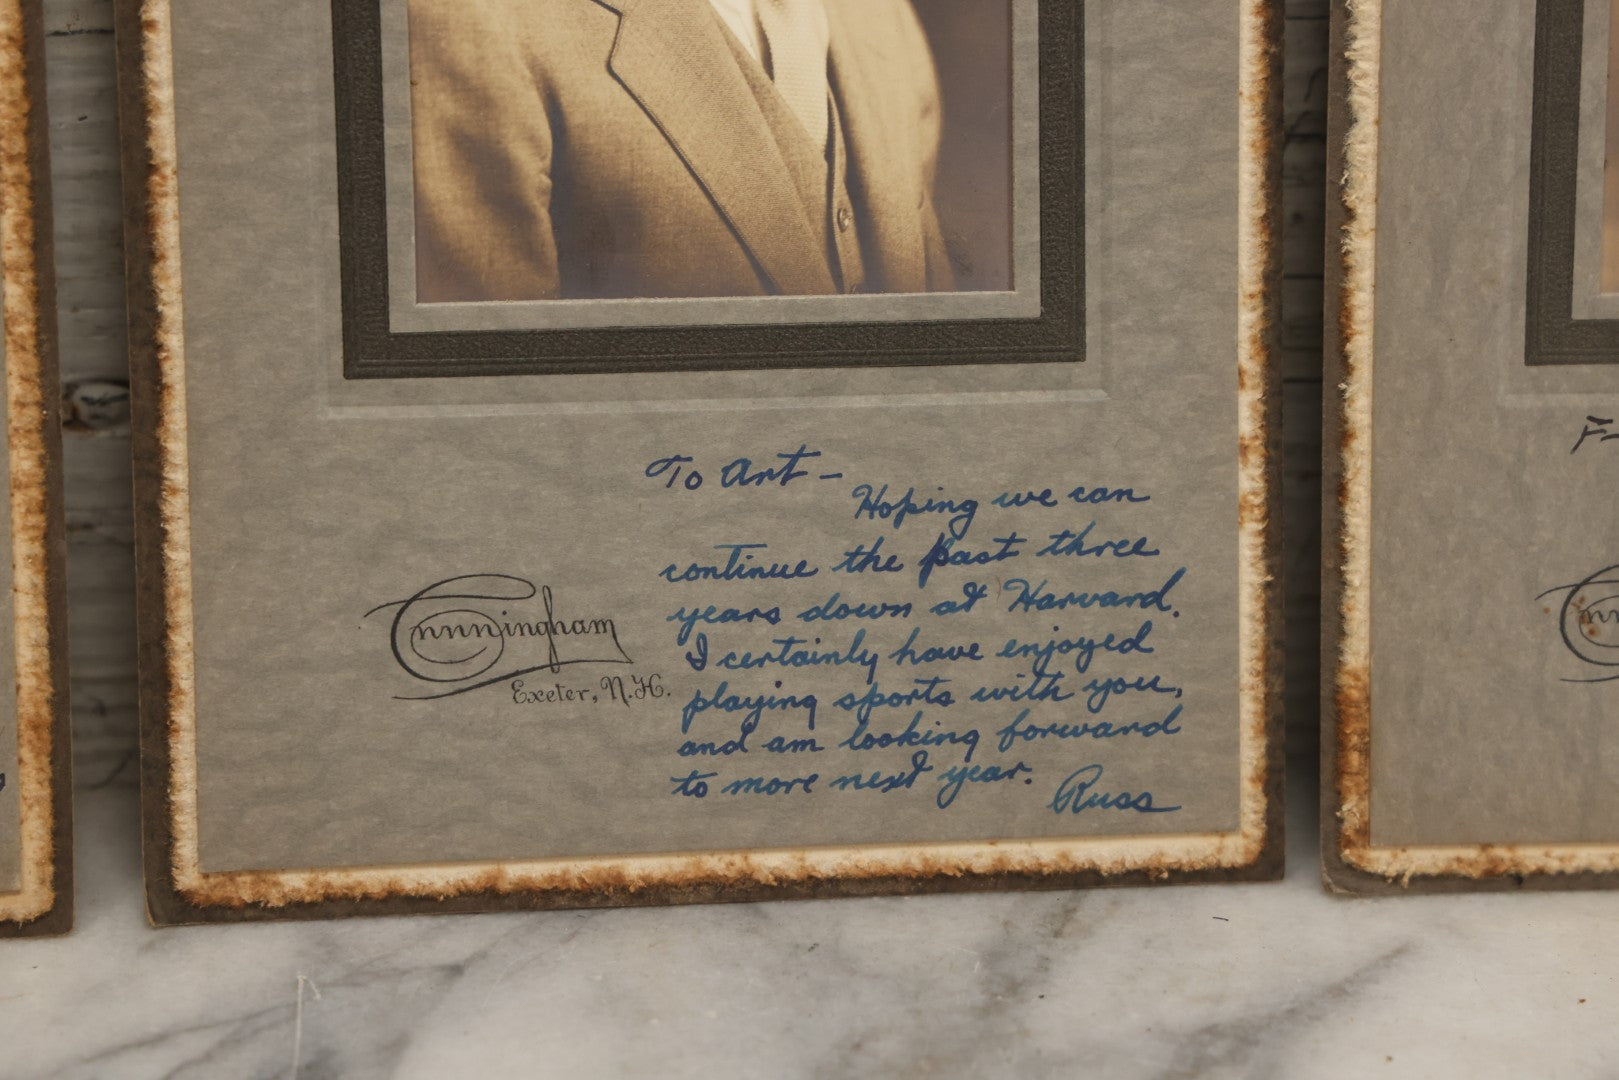 To Art –
Hoping we can
continue the past three
years down at Harvard.
I certainly have enjoyed
playing sports with you,
and am looking forward
to more next year.
Russ
Cunningham
Exeter, N.H.